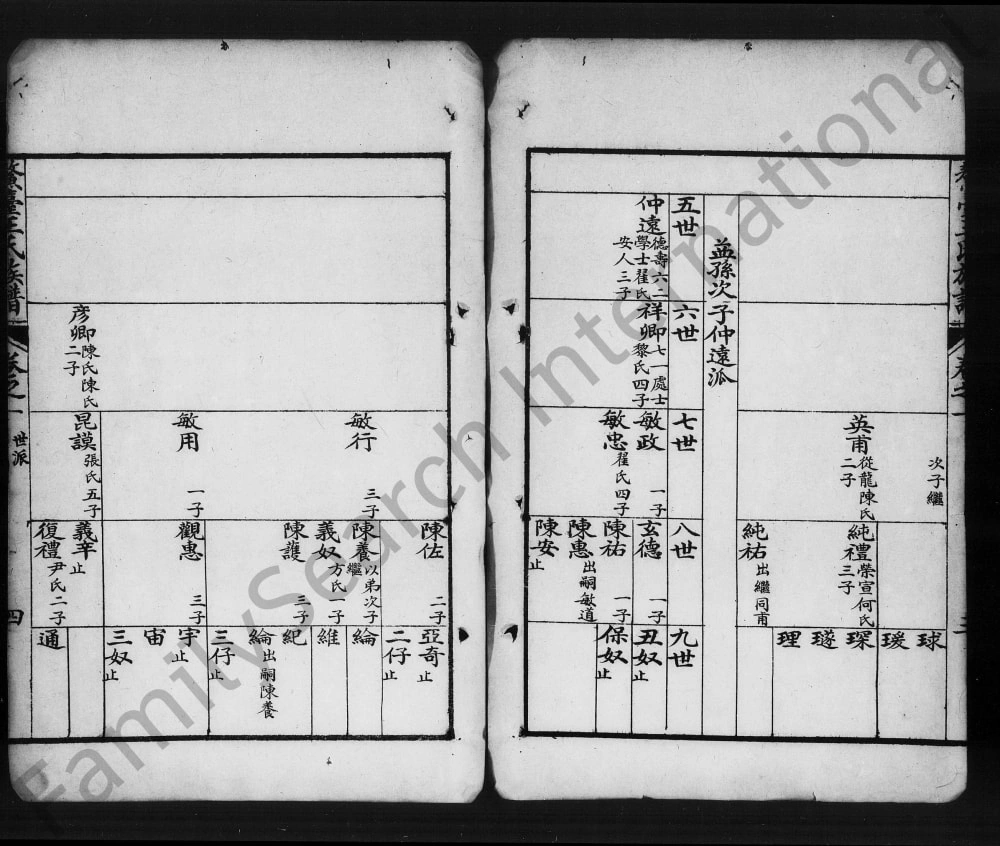 次子繼
球
瑗
英甫 從龍陳氏
二子
純禮 榮宣何氏
三子
琛
璲
理
純祐 出繼同甫
益孫次子仲遠派
五世
六世
七世
八世
九世
仲遠 德壽六二
學士翟氏
安人三子
祥卿 七一處士
黎氏四子
敏政 一子
玄德 一子
丑奴 止
敏忠 翟氏四子
陳祐 一子
保奴 止
陳惠 出嗣敏道
陳安 止
陳佐 二子
亞奇 止
二仔 止
敏行 三子
陳養 以弟次子
繼
綸
義奴 方氏一子
維
陳護 三子
紀
綸 出嗣陳養
三仔 止
敏用 一子
觀惠 三子
宇 止
宙
三奴 止
彦卿 陳氏陳氏
二子
昆謨 張氏五子
義辛 止
復禮 尹氏二子
通
鰲臺王氏族譜
卷之一
世派
四
FamilySearch International